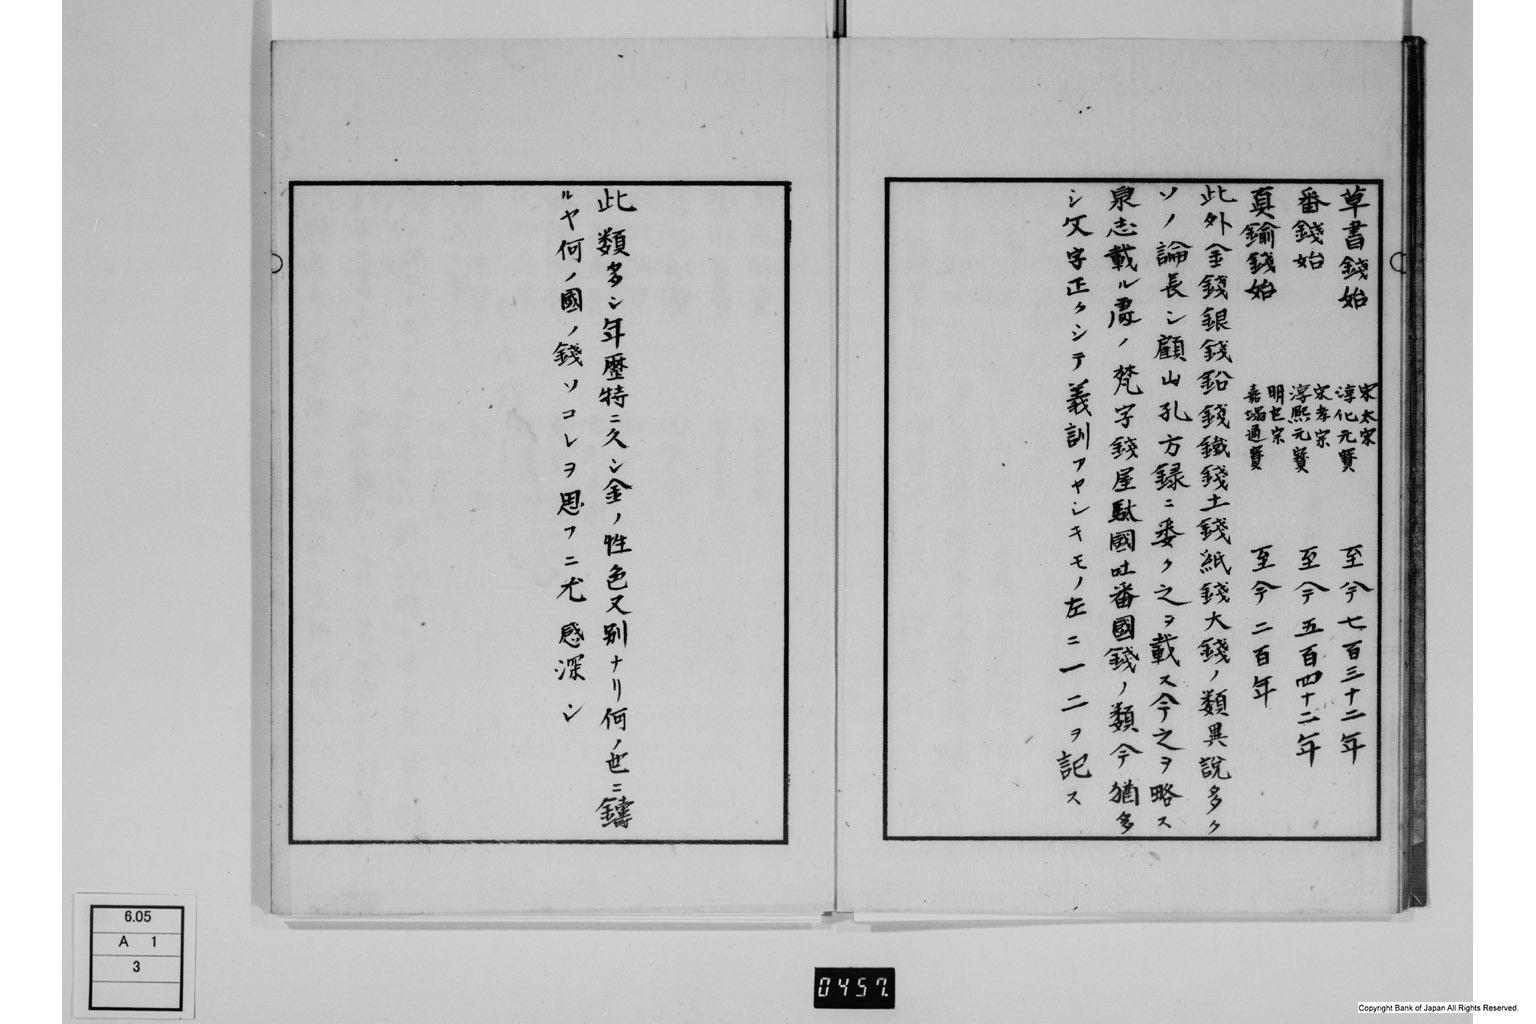 草書錢始 宋太宗 淳化元寳 至今七百三十二年
番錢始 宋孝宗 淳熙元寳 至今五百四十二年
真鍮錢始 明世宗 嘉靖通寳 至今二百年
此外金錢銀錢鉛錢鐵錢土錢紙錢大錢ノ類異説多ク
ソノ論長シ顧山孔方録ニ委ク之ヲ載ス今之ヲ略ス
泉志載ル䖏ノ梵字錢屋駄國吐番國錢ノ類今猶多
シ文字正クシテ義訓アヤシキモノ左ニ一二ヲ記ス
此類多シ年歷特ニ久シ金ノ性色又別ナリ何ノ世ニ鑄
ルヤ何ノ國ノ錢ソコレヲ思フニ尤感深シ
6.05
A 1
3
0457.
Copyright Bank of Japan All Rights Reserved.